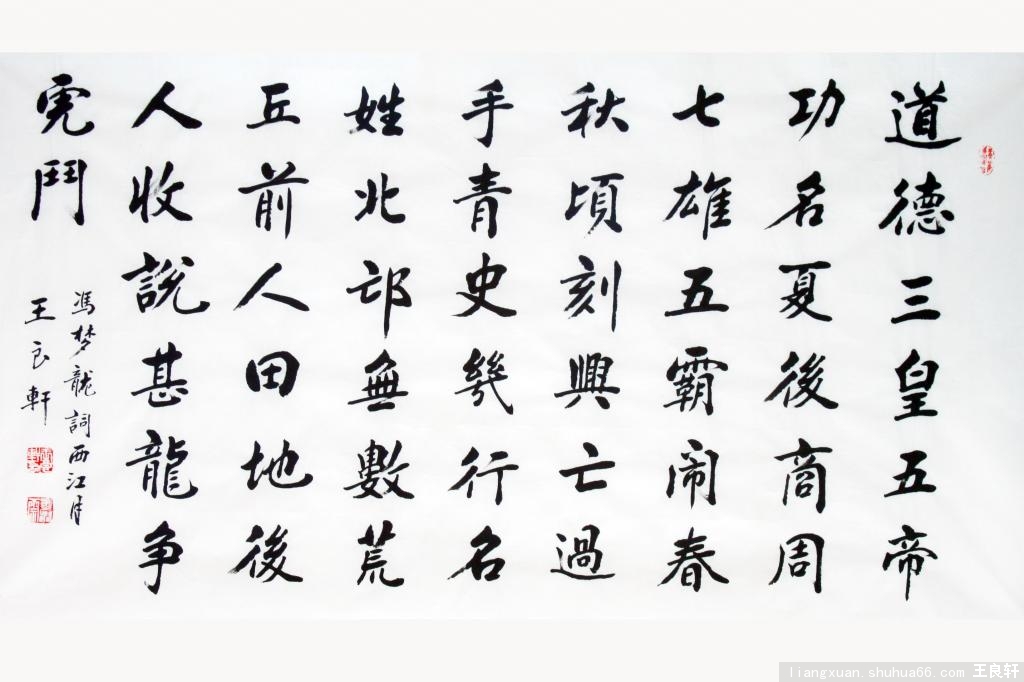 道德三皇五帝
功名夏後商周
七雄五霸闹春
秋頃刻興亡過
手青史幾行名
姓北邙無數荒
丘前人田地後
人收說甚龍争
虎鬥
馮梦龍詞西江月
王良軒
liangxuan.shuhua66.com 王良轩